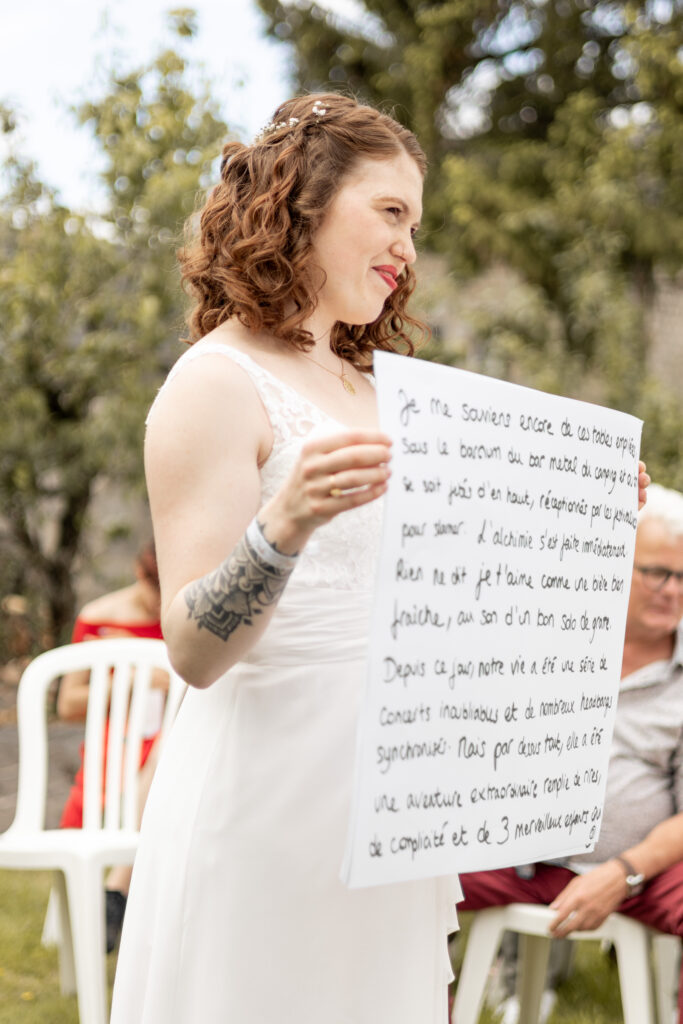 Je me souviens encore de ces tables empilées
sous le barnum du bar metal du camping et où on
se soit jetés d'en haut, réceptionnés par les festivaliers
pour slamer. L'alchimie s'est faite immédiatement
Rien ne dit je t'aime comme une bière bon
fraîche, au son d'un bon solo de gratte.
Depuis ce jour, notre vie a été une série de
concerts inoubliables et de nombreux headbangs
synchronisés. Mais par dessus tout, elle a été
une aventure extraordinaire remplie de rires,
de complicité et de 3 merveilleux enfants